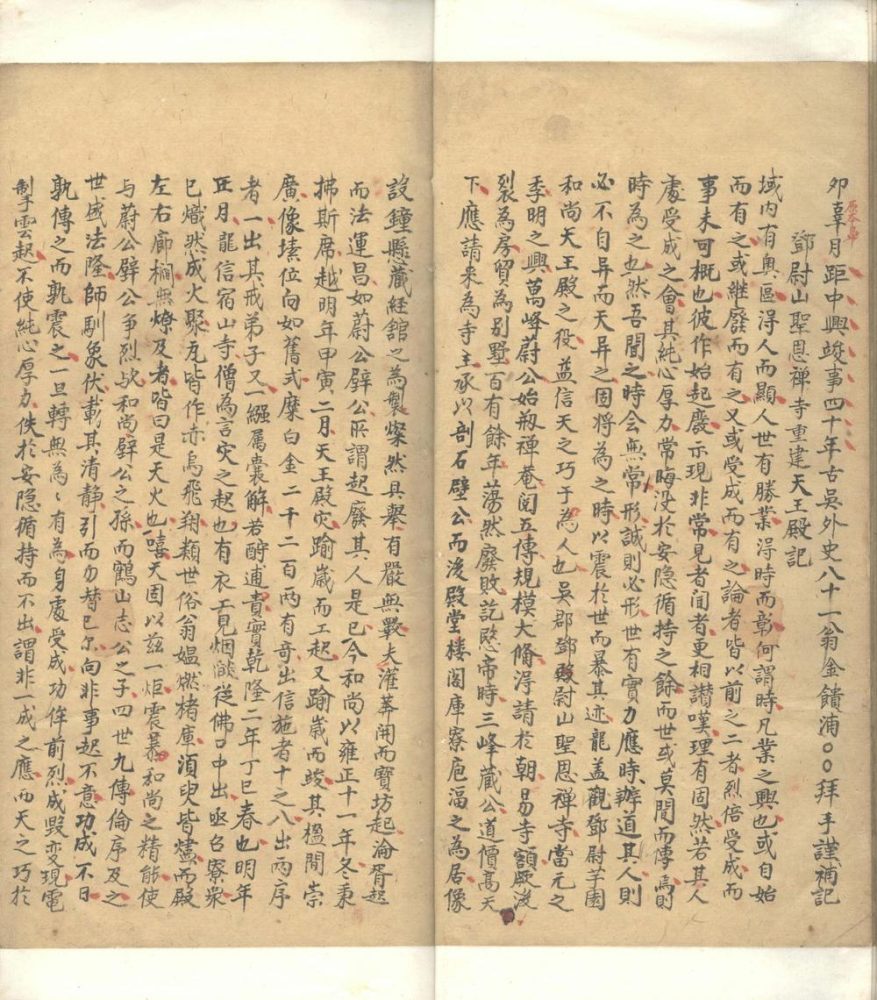 卯辜月距中興竣事四十年古吳外史八十一翁金饋浦○○拜手謹補記
鄧尉山聖恩禪寺重建天王殿記
域内有奥區得人而顯人世有勝業得時而彰何謂時凡業之興也或自始
而有之或継廢而有之又或受成而有之論者皆以前之二者烈倍受成而
事未可概也彼作始起廢示現非常見者聞者更相讃嘆理有固然若其人
處受成之會其純心厚力常晦没於安隐循持之餘而世或莫聞而傳焉則
時為之也然吾聞之時会無常形誠則必形世有實力應時辦道其人則
必不自异而天异之固将為之時以震於世而暴其迹龍盖觀鄧尉芉園
和尚天王殿之役益信天之巧于為人也吳郡鄧敗尉山聖恩禪寺當元之
季明之興萬峰蔚公始剏禪菴閲五傳規模大備淂請於朝易寺額厥後
裂為房貿為别墅百有餘年蕩然廢敗訖愍帝時三峰蔵公道價髙天
下應請来為寺主承以剖石壁公而浚殿堂楼閣庫寮庖湢之為居像
設鐘縣蔵経舘之為製燦然具舉有嚴無斁夫灌莽開而寶坊起淪胥起
而法運昌如蔚公壁公所謂起廢其人是已今和尚以雍正十一年冬秉
拂斯席越明年甲寅二月天王殿灾踰嵗而工起又踰嵗而竣其楹間崇
廣像塐位向如舊式糜白金二千二百两有竒出信施者十之八出两序
者一出其戒弟子又一繦属囊觧若酹逋責實乾隆二年丁巳春也明年
正月龍信宿山寺僧為言灾之起也有衣工見烟燄從佛口中出亟召寮衆
已熾然成火聚瓦皆作赤烏飛翔類世俗翁媪燃楮庫湏臾皆燼而殿
左右廊櫚無燎及者皆曰是天火也嘻天固以兹一炬震暴和尚之精能使
与蔚公壁公争烈歟和尚壁公之孫而鶴山志公之子四世九傳倫序及之
世盛法隆師馴象伏載其清静引而勿替已尔向非事起不意功成不日
孰傳之而孰震之一旦轉無為〻有為身處受成功侔前烈成毁变現電
掣雲起不使純心厚力佚於安隐循持而不出謂非一成之應而天之巧於